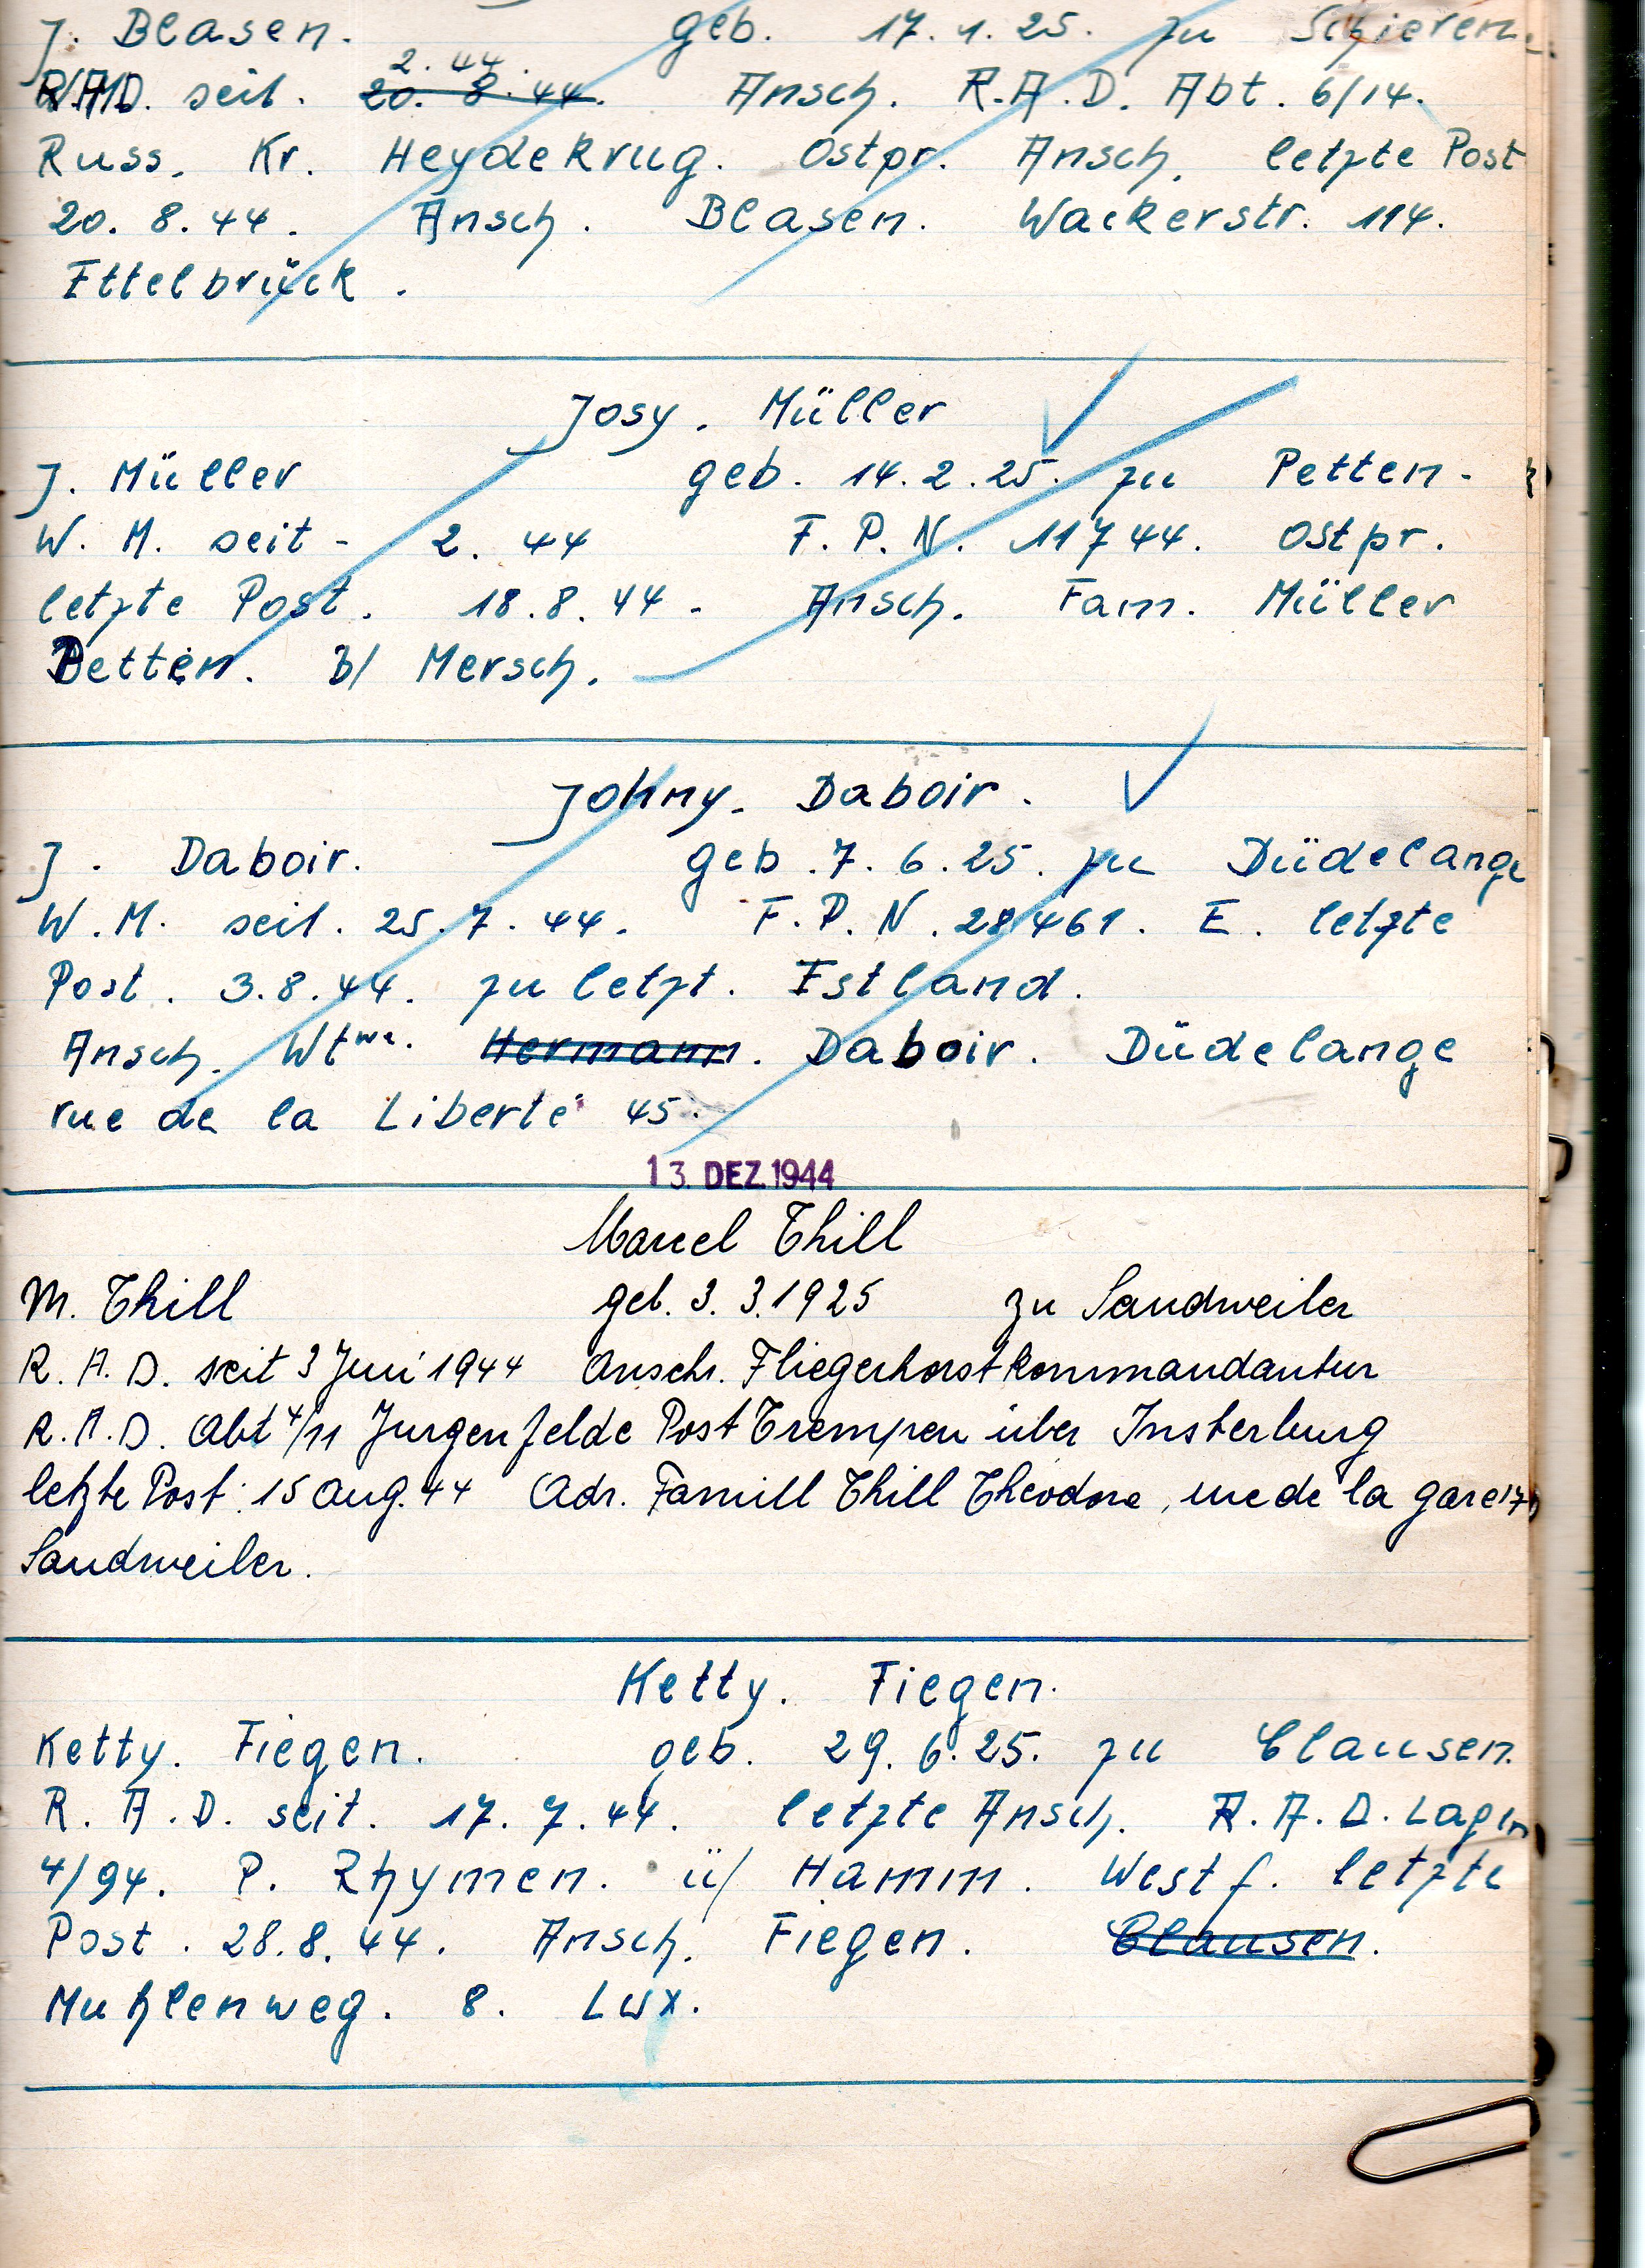 J. Blasen. geb. 17.1.25. zu Schieren.
R.A.D. seit. 2.44. 20.8.44. Ansch. R.A.D. Abt. 6/14.
Russ. Kr. Heydekrug. Ostpr. Ansch. letzte Post
20.8.44. Ansch. Blasen. Wackerstr. 114.
Ettelbrück.
Josy. Müller
J. Müller geb. 14.2.25. zu Petten-
W.M. seit - 2.44 F.P.N. 11744. Ostpr.
letzte Post. 18.8.44 - Ansch. Fam. Müller
Petten. b/ Mersch.
Johny. Daboir.
J. Daboir. geb. 7.6.25. zu Düdelange
W.M. seit. 25.7.44. F.P.N. 28461. E. letzte
Post. 3.8.44. zu letzt. Estland.
Ansch. Wtwe. Hermann. Daboir. Düdelange
rue de la Liberté 45.
13. DEZ. 1944
Marcel Thill
M. Thill geb. 3.3.1925 zu Sandweiler
R.A.D. seit 3 Juni 1944 Anschr. Fliegerhorstkommandantur
R.A.D. Abt 4/11 Jurgenfelde Post Trempen über Insterburg
letzte Post: 15 Aug. 44 Adr. Famill Thill Théodore, rue de la gare 17
Sandweiler.
Ketty. Fiegen.
Ketty. Fiegen. geb. 29.6.25. zu Clausen.
R.A.D. seit. 17.7.44. letzte Ansch. R.A.D. Lager
4/94. P. Rhymen. ü/ Hamm. Westf. letzte
Post. 28.8.44. Ansch. Fiegen. Clausen.
Muhlenweg. 8. Lux.